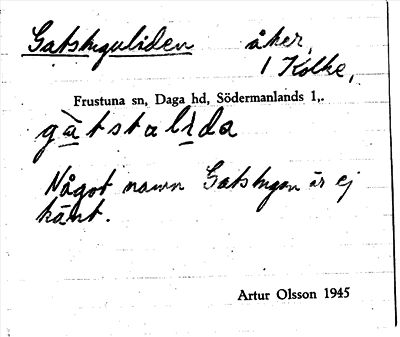 Gatstuguliden åker,
1 Kolke,
Frustuna sn, Daga hd, Södermanlands l,.
gàtstalida
Något namn Gatstugan är ej
känt.
Artur Olsson 1945